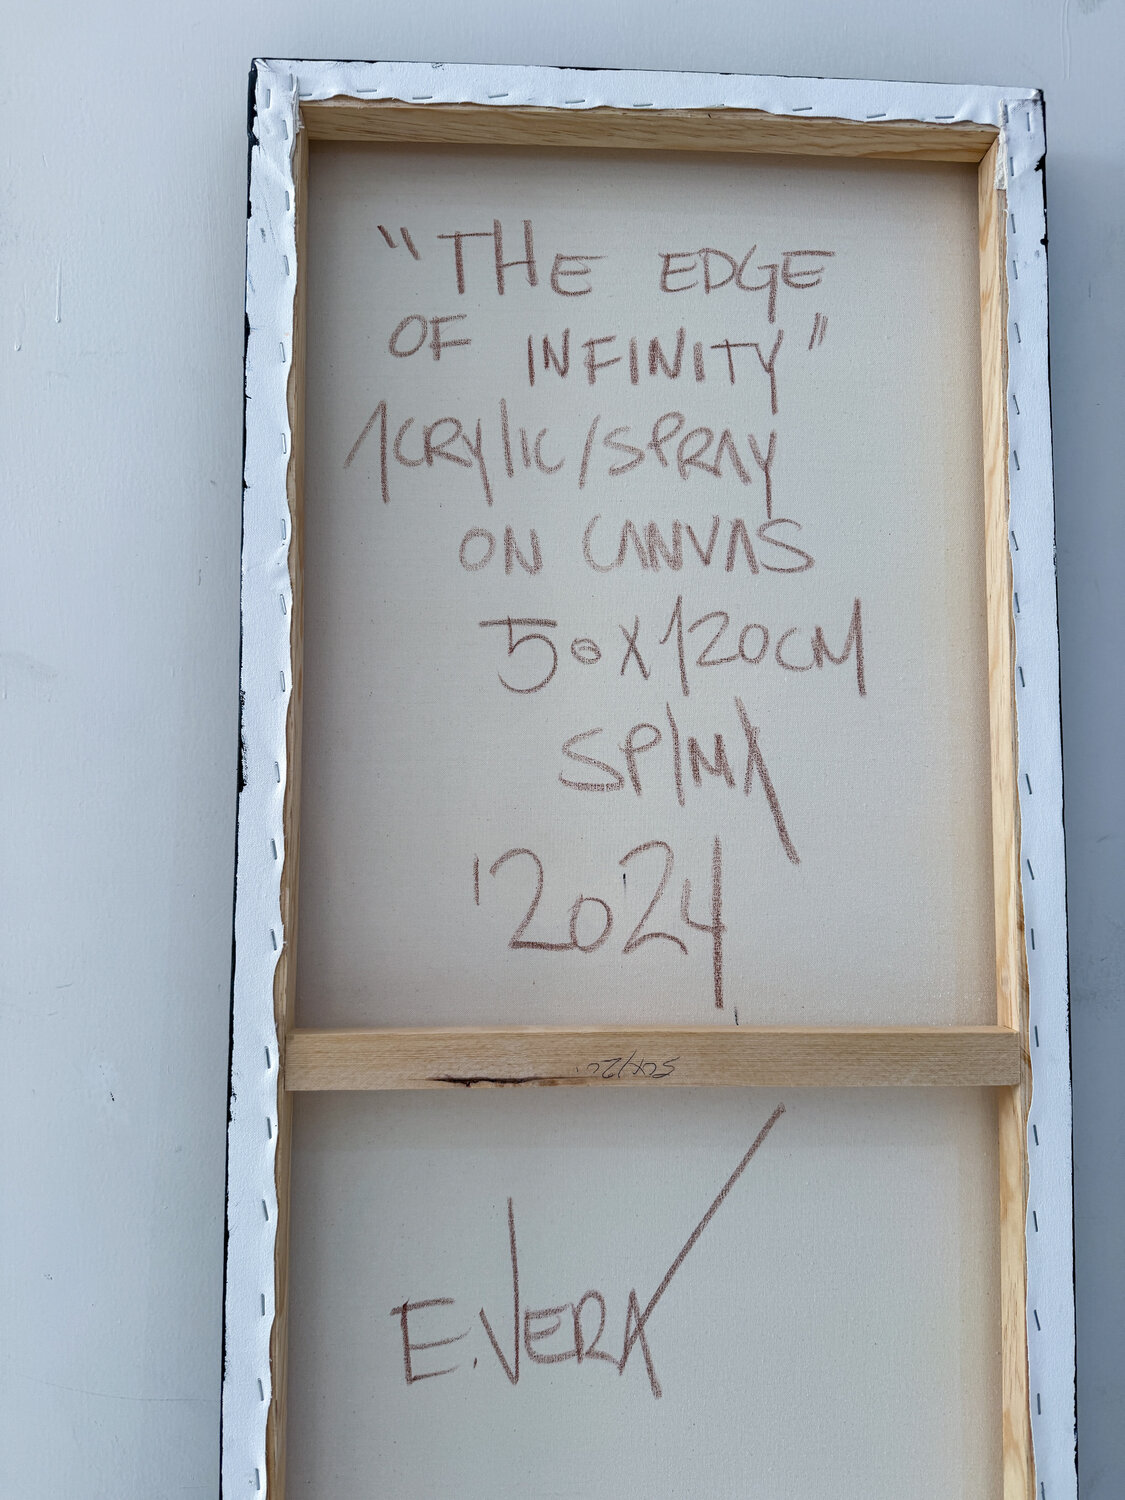 "THE EDGE
OF INFINITY"
ACRYLIC/SPRAY
ON CANVAS
50X120CM
SP/MA
'2024
50X120
E.VERA